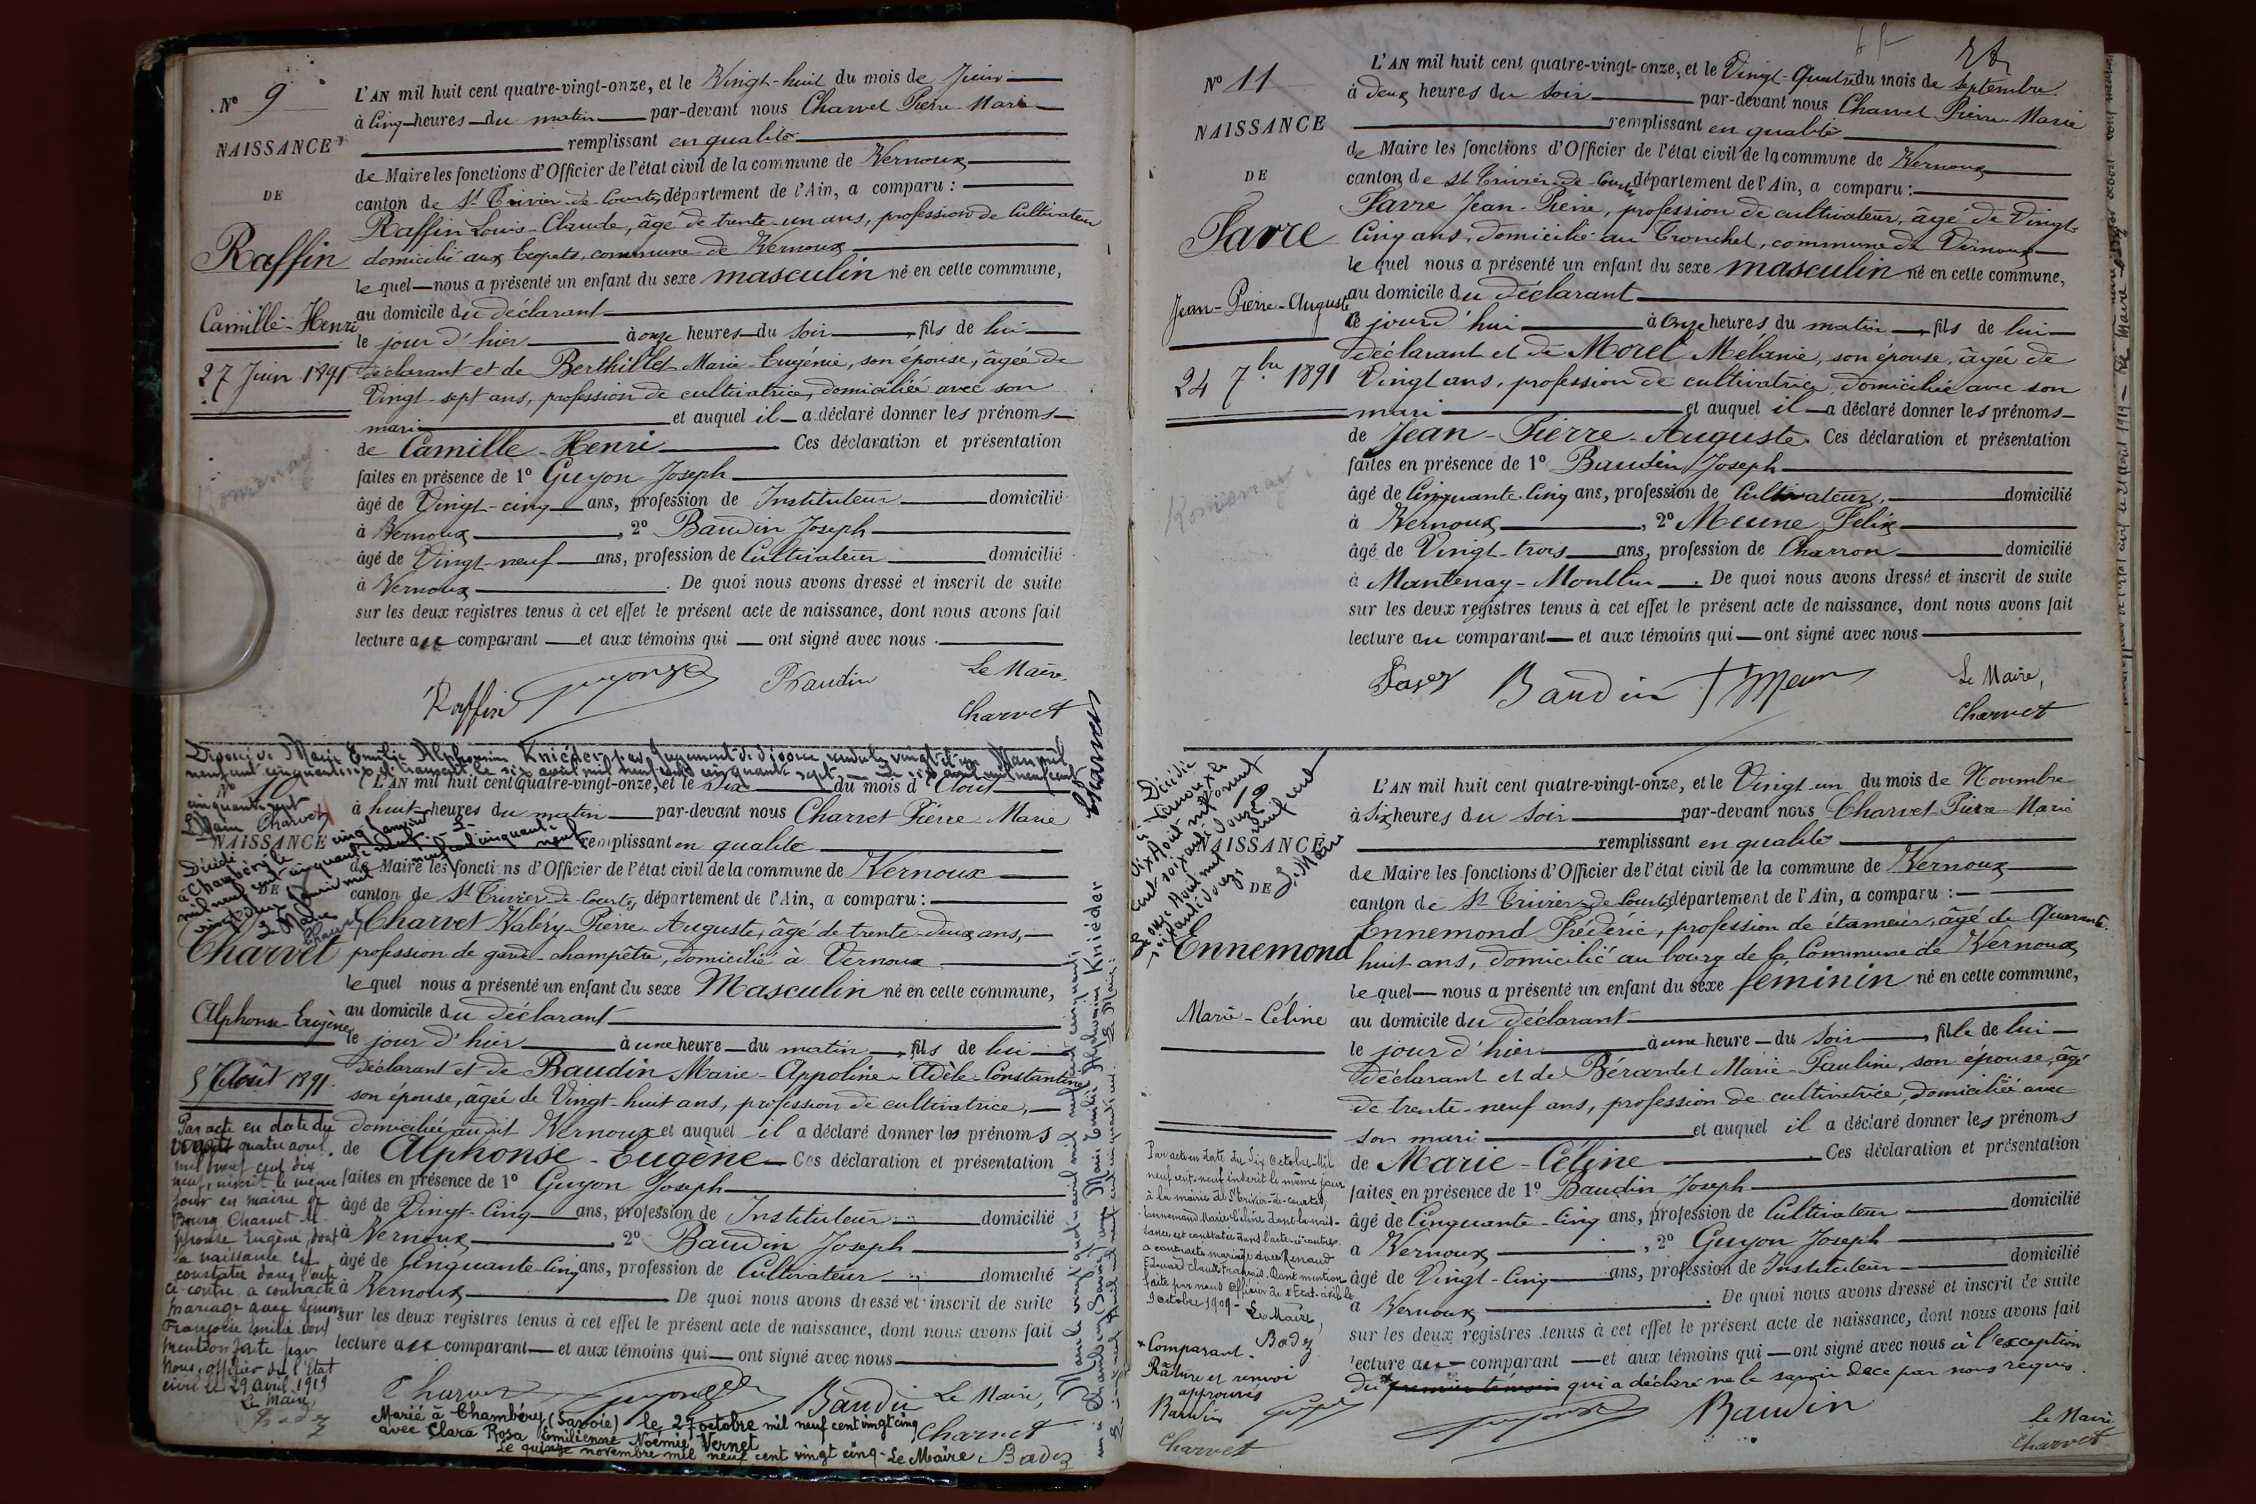 N° 9
NAISSANCE
DE
Raffin
Camille-Henri
27 Juin 1891
L'AN mil huit cent quatre-vingt-onze, et le Vingt-huit du mois de Juin
à Cinq heures du matin par-devant nous Charvet Pierre-Marie
remplissant en qualité
de Maire les fonctions d'Officier de l'état civil de la commune de Vernoux
canton de St Trivier-de-Courtes département de l'Ain, a comparu :
Raffin Louis-Claude, âgé de trente-un ans, profession de Cultivateur
domicilié aux commune de Vernoux
le quel nous a présenté un enfant du sexe masculin né en cette commune,
au domicile du déclarant
le jour d'hier à onze heures du soir, fils de lui
déclarant et de Berthillet Marie-Eugénie, son épouse, âgée de
Vingt-sept ans, profession de cultivatrice, domiciliée avec son
mari et auquel il a déclaré donner les prénoms
de Camille-Henri Ces déclaration et présentation
faites en présence de 1° Guyon Joseph
âgé de Vingt-cinq ans, profession de Instituteur domicilié
à Vernoux, 2° Baudin Joseph
âgé de Vingt-neuf ans, profession de Cultivateur domicilié
à Vernoux. De quoi nous avons dressé et inscrit de suite
sur les deux registres tenus à cet effet le présent acte de naissance, dont nous avons fait
lecture au comparant et aux témoins qui ont signé avec nous.
Raffin Baudin Le Maire,
Charvet
Divorcé de Marie Emilie Alphonsine Kniéder par jugement de divorce rendu le vingt et un Mars mil
neuf cent cinquante six et transcrit le six avril mil neuf cent cinquante sept. - Le six avril mil neuf cent
cinquante sept
Le Maire Charvet
NAISSANCE
DE
Décédé
à Chambéry le cinq janvier
mil neuf cent cinquante neuf. - Le
vingt deux janvier mil neuf cent cinquante neuf
Le Maire
Charvet
Charvet
Alphonse-Eugène
5 Août 1891
L'AN mil huit cent quatre-vingt-onze, et le six du mois d'Août
à huit heures du matin par-devant nous Charvet Pierre-Marie
remplissant en qualité
de Maire les fonctions d'Officier de l'état civil de la commune de Vernoux
canton de St Trivier-de-Courtes département de l'Ain, a comparu :
Charvet Valéry-Pierre-Auguste, âgé de trente-deux ans,
profession de garde-champêtre, domicilié à Vernoux
le quel nous a présenté un enfant du sexe Masculin né en cette commune,
au domicile du déclarant
le jour d'hier à une heure du matin, fils de lui
déclarant et de Baudin Marie-Appoline-Adèle-Constantine
son épouse, âgée de Vingt-huit ans, profession de cultivatrice,
domiciliée audit Vernoux et auquel il a déclaré donner les prénoms
de Alphonse-Eugène Ces déclaration et présentation
faites en présence de 1° Guyon Joseph
âgé de Vingt-Cinq ans, profession de Instituteur domicilié
à Vernoux 2° Baudin Joseph
âgé de Cinquante-Cinq ans, profession de Cultivateur domicilié
à Vernoux De quoi nous avons dressé et inscrit de suite
sur les deux registres tenus à cet effet le présent acte de naissance, dont nous avons fait
lecture au comparant et aux témoins qui ont signé avec nous
Charvet Baudin Le Maire,
Charvet
Par acte en date du
vingt quatre avril
mil neuf cent dix
neuf, inscrit le même
jour en mairie de
Bourg Charvet Al
phonse Eugène, dont
la naissance est
constatée dans l'acte
ci-contre, a contracté
mariage avec Simon
Françoise Emilie dont
mention faite par
Nous, officier de l'Etat
civil le 29 avril 1919
Le Maire,
Badez
Marié à Chambéry (Savoie) le 27 octobre mil neuf cent vingt cinq
avec Clara Rosa Emilienne Noémie Vernet
Le quinze novembre mil neuf cent vingt cinq - Le Maire Badez
Charvet
N° 11
NAISSANCE
DE
Favre
Jean-Pierre-Auguste
24 7bre 1891
Romenay
L'AN mil huit cent quatre-vingt-onze, et le Vingt-Quatre du mois de Septembre
à deux heures du soir par-devant nous Charvet Pierre-Marie
remplissant en qualité
de Maire les fonctions d'Officier de l'état civil de la commune de Vernoux
canton de St Trivier-de-Courtes département de l'Ain, a comparu :
Favre Jean-Pierre, profession de cultivateur, âgé de Vingt-
Cinq ans, domicilié au Tronchet, commune de Vernoux
le quel nous a présenté un enfant du sexe masculin né en cette commune,
au domicile du déclarant
ce jourd'hui à Onze heures du matin, fils de lui
déclarant et de Morel Mélanie, son épouse, âgée de
Vingt ans, profession de cultivatrice, domiciliée avec son
mari et auquel il a déclaré donner les prénoms
de Jean-Pierre-Auguste. Ces déclaration et présentation
faites en présence de 1° Baudin Joseph
âgé de Cinquante-Cinq ans, profession de Cultivateur, domicilié
à Vernoux, 2° Meune Félix
âgé de Vingt-trois ans, profession de Charron domicilié
à Mantenay-Montlin. De quoi nous avons dressé et inscrit de suite
sur les deux registres tenus à cet effet le présent acte de naissance, dont nous avons fait
lecture au comparant et aux témoins qui ont signé avec nous
Baudin Le Maire,
Charvet
Décédée
à Vernoux le
dix Août mil neuf
cent soixante douze
Le onze Août mil neuf cent
soixante douze
Le Maire
12
NAISSANCE
DE
Ennemond
Marie-Céline
L'AN mil huit cent quatre-vingt-onze, et le Vingt-un du mois de Novembre
à Six heures du soir par-devant nous Charvet Pierre-Marie
remplissant en qualité
de Maire les fonctions d'Officier de l'état civil de la commune de Vernoux
canton de St Trivier-de-Courtes département de l'Ain, a comparu :
Ennemond Frédéric, profession de étameur, âgé de Quarante-
huit ans, domicilié au bourg de la Commune de Vernoux
le quel nous a présenté un enfant du sexe féminin né en cette commune,
au domicile du déclarant
le jour d'hier à une heure du soir, fille de lui
déclarant et de Bérardet Marie-Pauline, son épouse, âgé
de trente-neuf ans, profession de cultivatrice, domiciliée avec
son mari et auquel il a déclaré donner les prénoms
de Marie-Céline Ces déclaration et présentation
faites en présence de 1° Baudin Joseph
âgé de Cinquante-Cinq ans, profession de Cultivateur domicilié
à Vernoux, 2° Guyon Joseph
âgé de Vingt-Cinq ans, profession de Instituteur domicilié
à Vernoux. De quoi nous avons dressé et inscrit de suite
sur les deux registres tenus à cet effet le présent acte de naissance, dont nous avons fait
lecture au comparant et aux témoins qui ont signé avec nous à l'exception
du premier témoin qui a déclaré ne le savoir de ce par nous requis.
Baudin
Le Maire
Charvet
Par acte en date du Six Octobre mil
neuf cent neuf inscrit le même jour
à la mairie de St Trivier-de-Courtes,
Ennemond Marie Céline dont la nais-
sance est constatée dans l'acte ci-contre
a contracté mariage avec Renaud
Edouard Claude François. Dont mention
faite par nous Officier de l'Etat-civil le
9 octobre 1909 - Le Maire,
Badez
* Comparant.
Rature et renvoi
approuvés
Baudin
Charvet